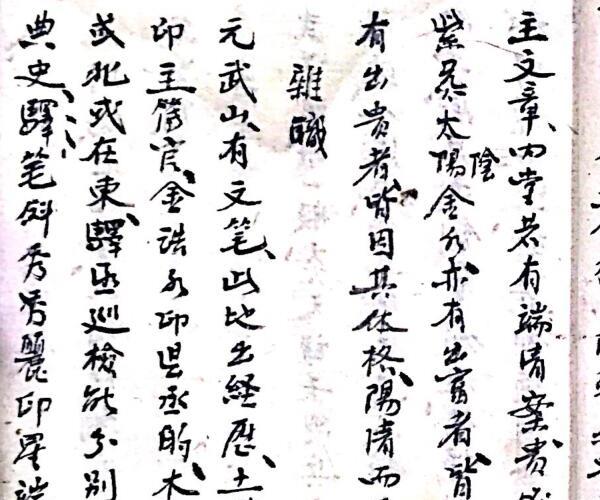 主文章、內堂若有端清案貴
紫氣太陽陰金水亦有出富者、皆
有出貴者、皆因其体格、陽清而
雜職
元武山、有文笔、此地出経歷、土
印主簿官、金誥水印县丞的、木
或北或在東、驛丞巡檢能分別
典史、驛笔斜秀秀麗印星端